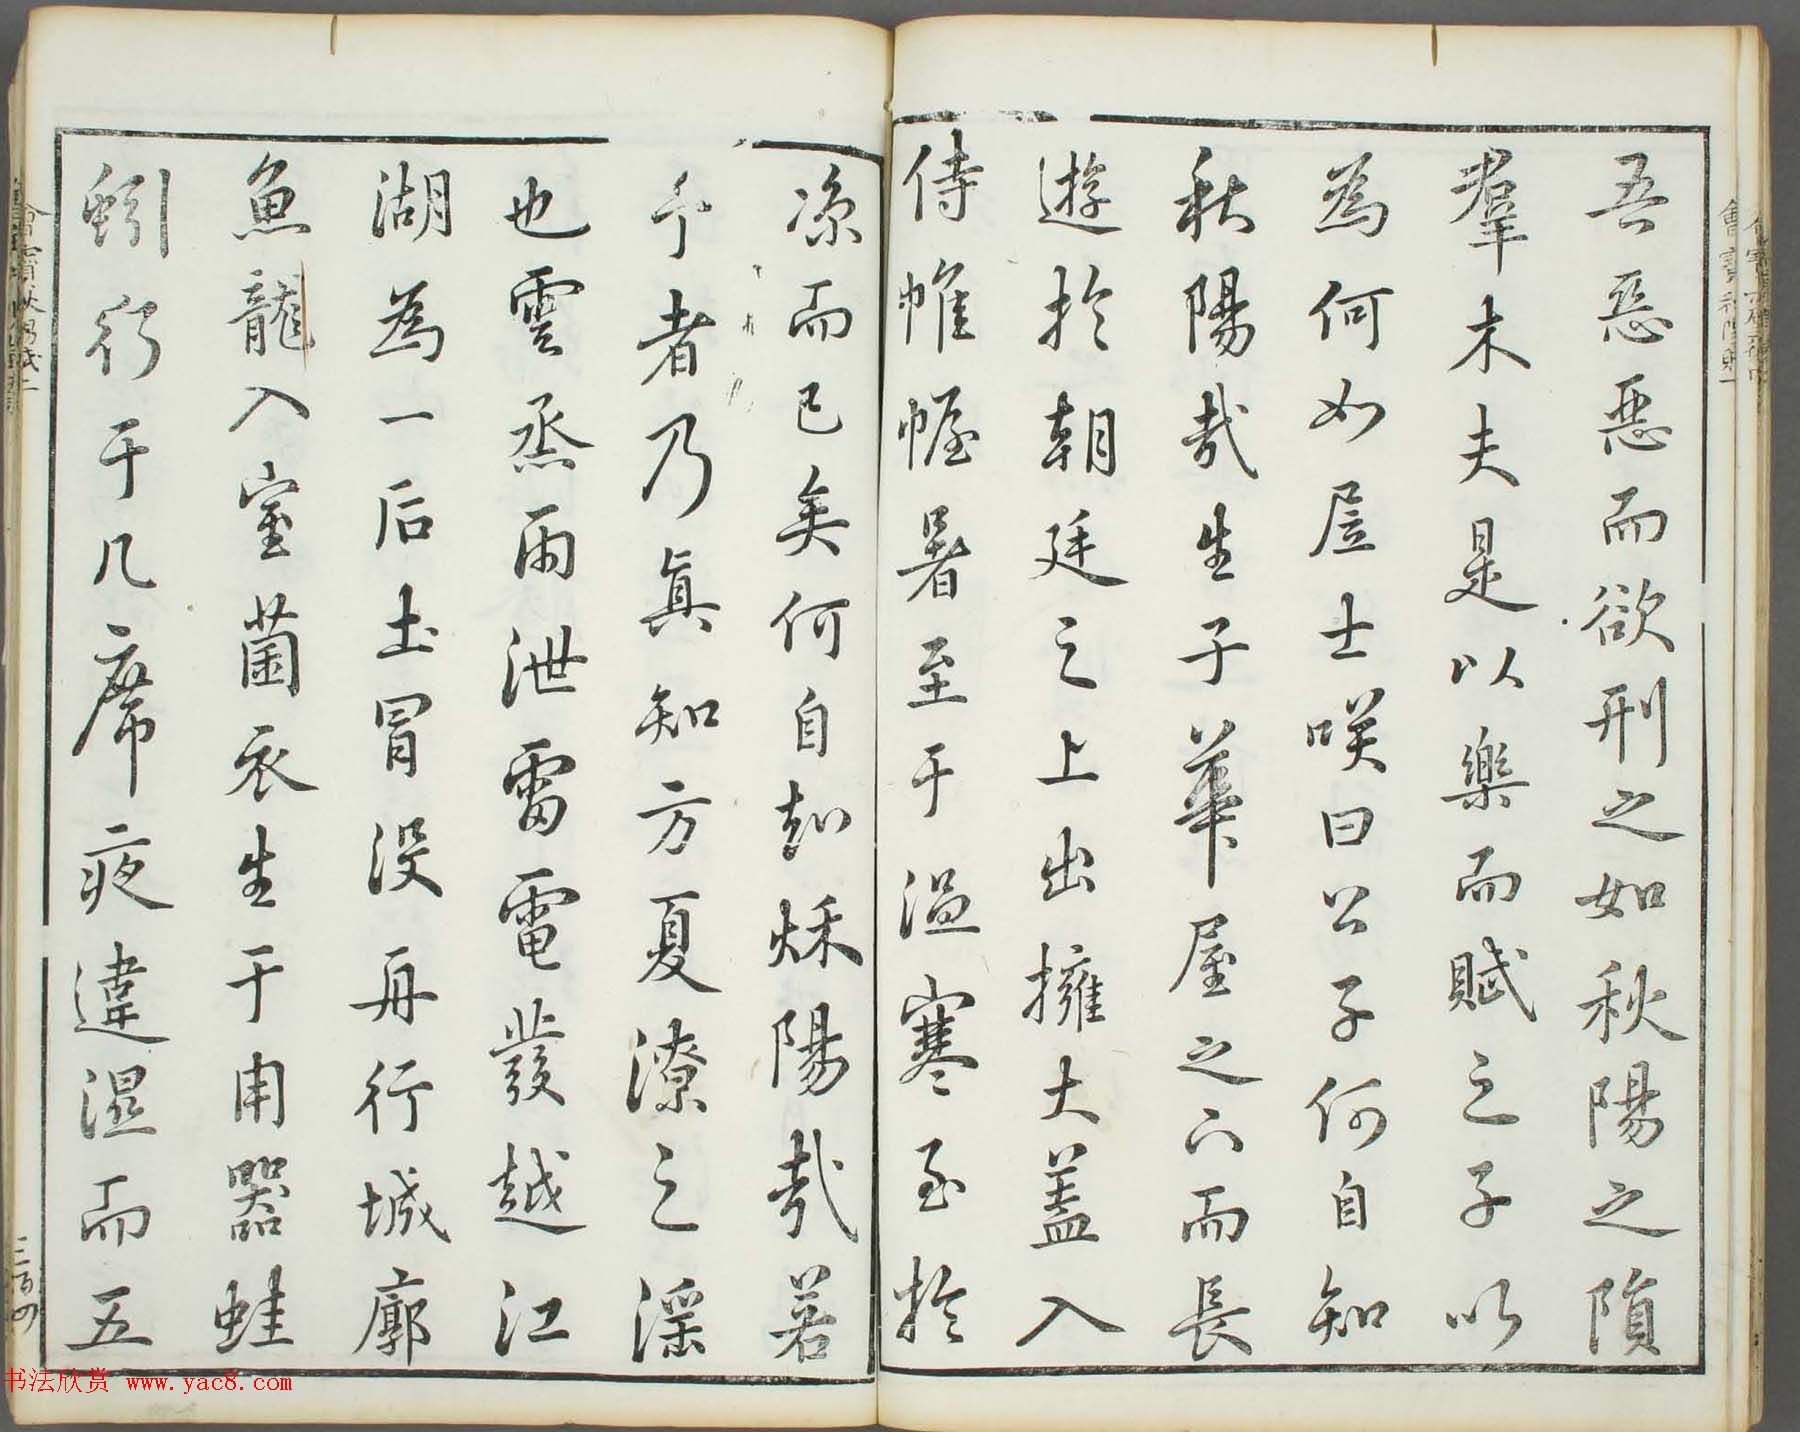 吾惡惡而欲刑之如秋陽之隕
羣木夫是以樂而賦之子以
為何如居士咲曰公子何自知
秋陽哉生于華屋之下而長
遊於朝廷之上出擁大蓋入
侍帷幄暑至于温寒至於
凉而已矣何自知秌陽哉若
予者乃真知方夏潦之淫
也雲烝雨泄雷電發越江
湖為一后土冒沒舟行城廓
魚龍入室菌衣生于用器蛙
蚓行于几席夜違濕而五
三百四
书法欣赏 www.yac8.com